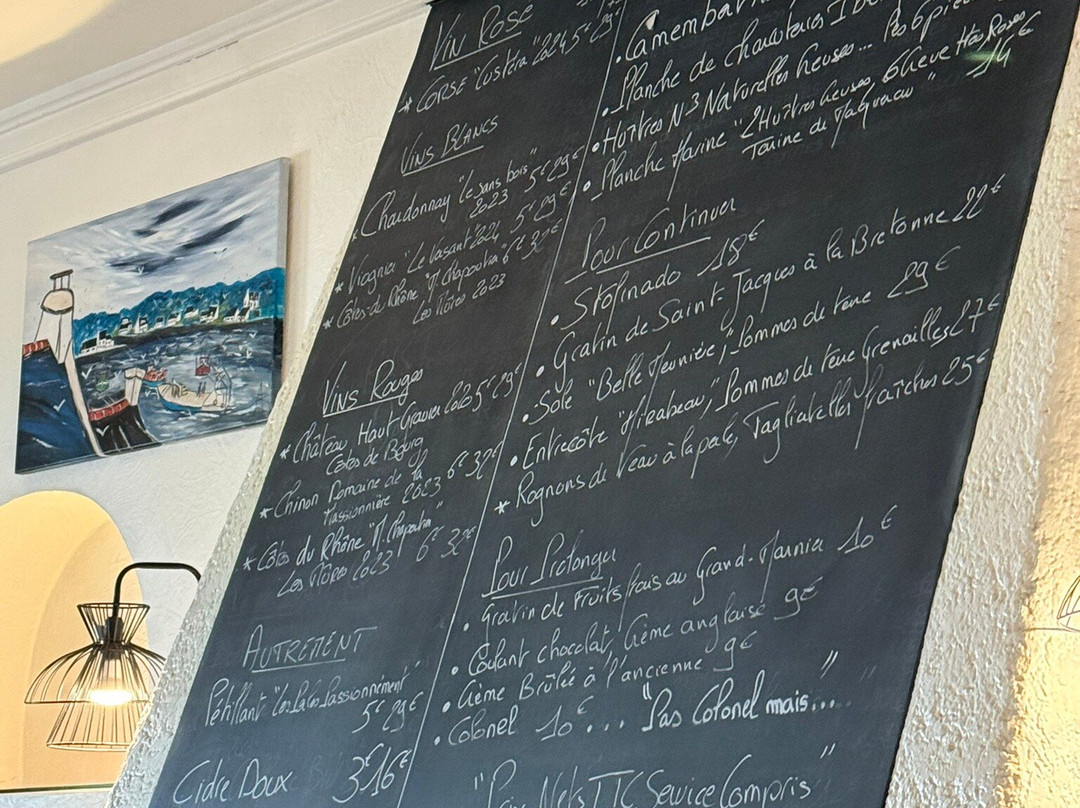 Vin Rosé
* Corse "Custera" 2024 5€ 29€
Vins Blancs
* Chardonnay "le sans bois" 5€ 29€
2023
* Viognier "Le Vasant" 2024 5€ 29€
* Côtes du Rhône "M. Chapoutier" 6€ 32€
2023
Vins Rouges
* Château Haut-Gravier 2020 5€ 29€
Côtes de Bourg
* Chinon Domaine de la 6€ 32€
2023
* Côtes du Rhône "M. Chapoutier"
2023 6€ 32€
Autrement
Pétillant
5€ 29€
Cidre Doux 3€ 16€
• Camembert
• Planche de charcuteries
• Huîtres N°3 Naturelles heuses... Les 6 pièces
• Planche Marine "2 Huîtres heuses, 6 Crevettes Roses 14€
Tarine de Maquereau"
Pour Continuer
• Stofinado 18€
• Gratin de Saint-Jacques à la Bretonne 22€
• Sole "Belle Meunière", Pommes de terre 29€
• Entrecôte "Mirabeau", Pommes de terre Grenailles 27€
* Rognons de Veau à la pale, Tagliatelles fraîches 25€
Pour Prolonger
• Gratin de Fruits frais au Grand-Marnier 10€
• Coulant chocolat, Crème anglaise 9€
• Crème Brûlée à l'ancienne 9€
• Colonel 10€... "Pas Colonel mais..."
"Prix Nets TTC Service Compris"